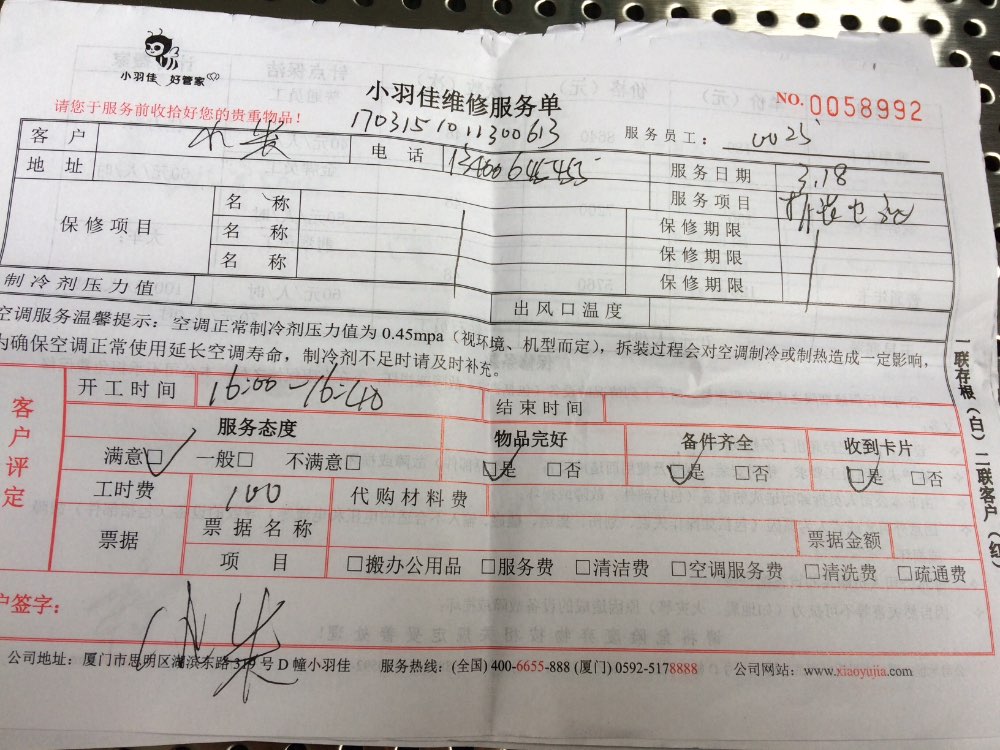 小羽佳 好管家
小羽佳维修服务单
NO. 0058992
请您于服务前收拾好您的贵重物品！
1703151011300613
服务员工： 0025
客户
电话
服务日期 3.18
地址
服务项目
保修项目 名称 保修期限
名称 保修期限
名称 保修期限
制冷剂压力值 出风口温度
空调服务温馨提示：空调正常制冷剂压力值为 0.45mpa（视环境、机型而定），拆装过程会对空调制冷或制热造成一定影响，
为确保空调正常使用延长空调寿命，制冷剂不足时请及时补充。
一联存根（白）二联客户（红）
客户评定
开工时间 16:00-16:40 结束时间
服务态度 物品完好 备件齐全 收到卡片
满意□ 一般□ 不满意□ □是 □否 □是 □否 □是 □否
工时费 100 代购材料费
票据 票据名称 票据金额
项目 □搬办公用品 □服务费 □清洁费 □空调服务费 □清洗费 □疏通费
户签字：
公司地址：厦门市思明区湖滨东路319号D幢小羽佳 服务热线：(全国) 400-6655-888 (厦门) 0592-5178888 公司网站：www.xiaoyujia.com